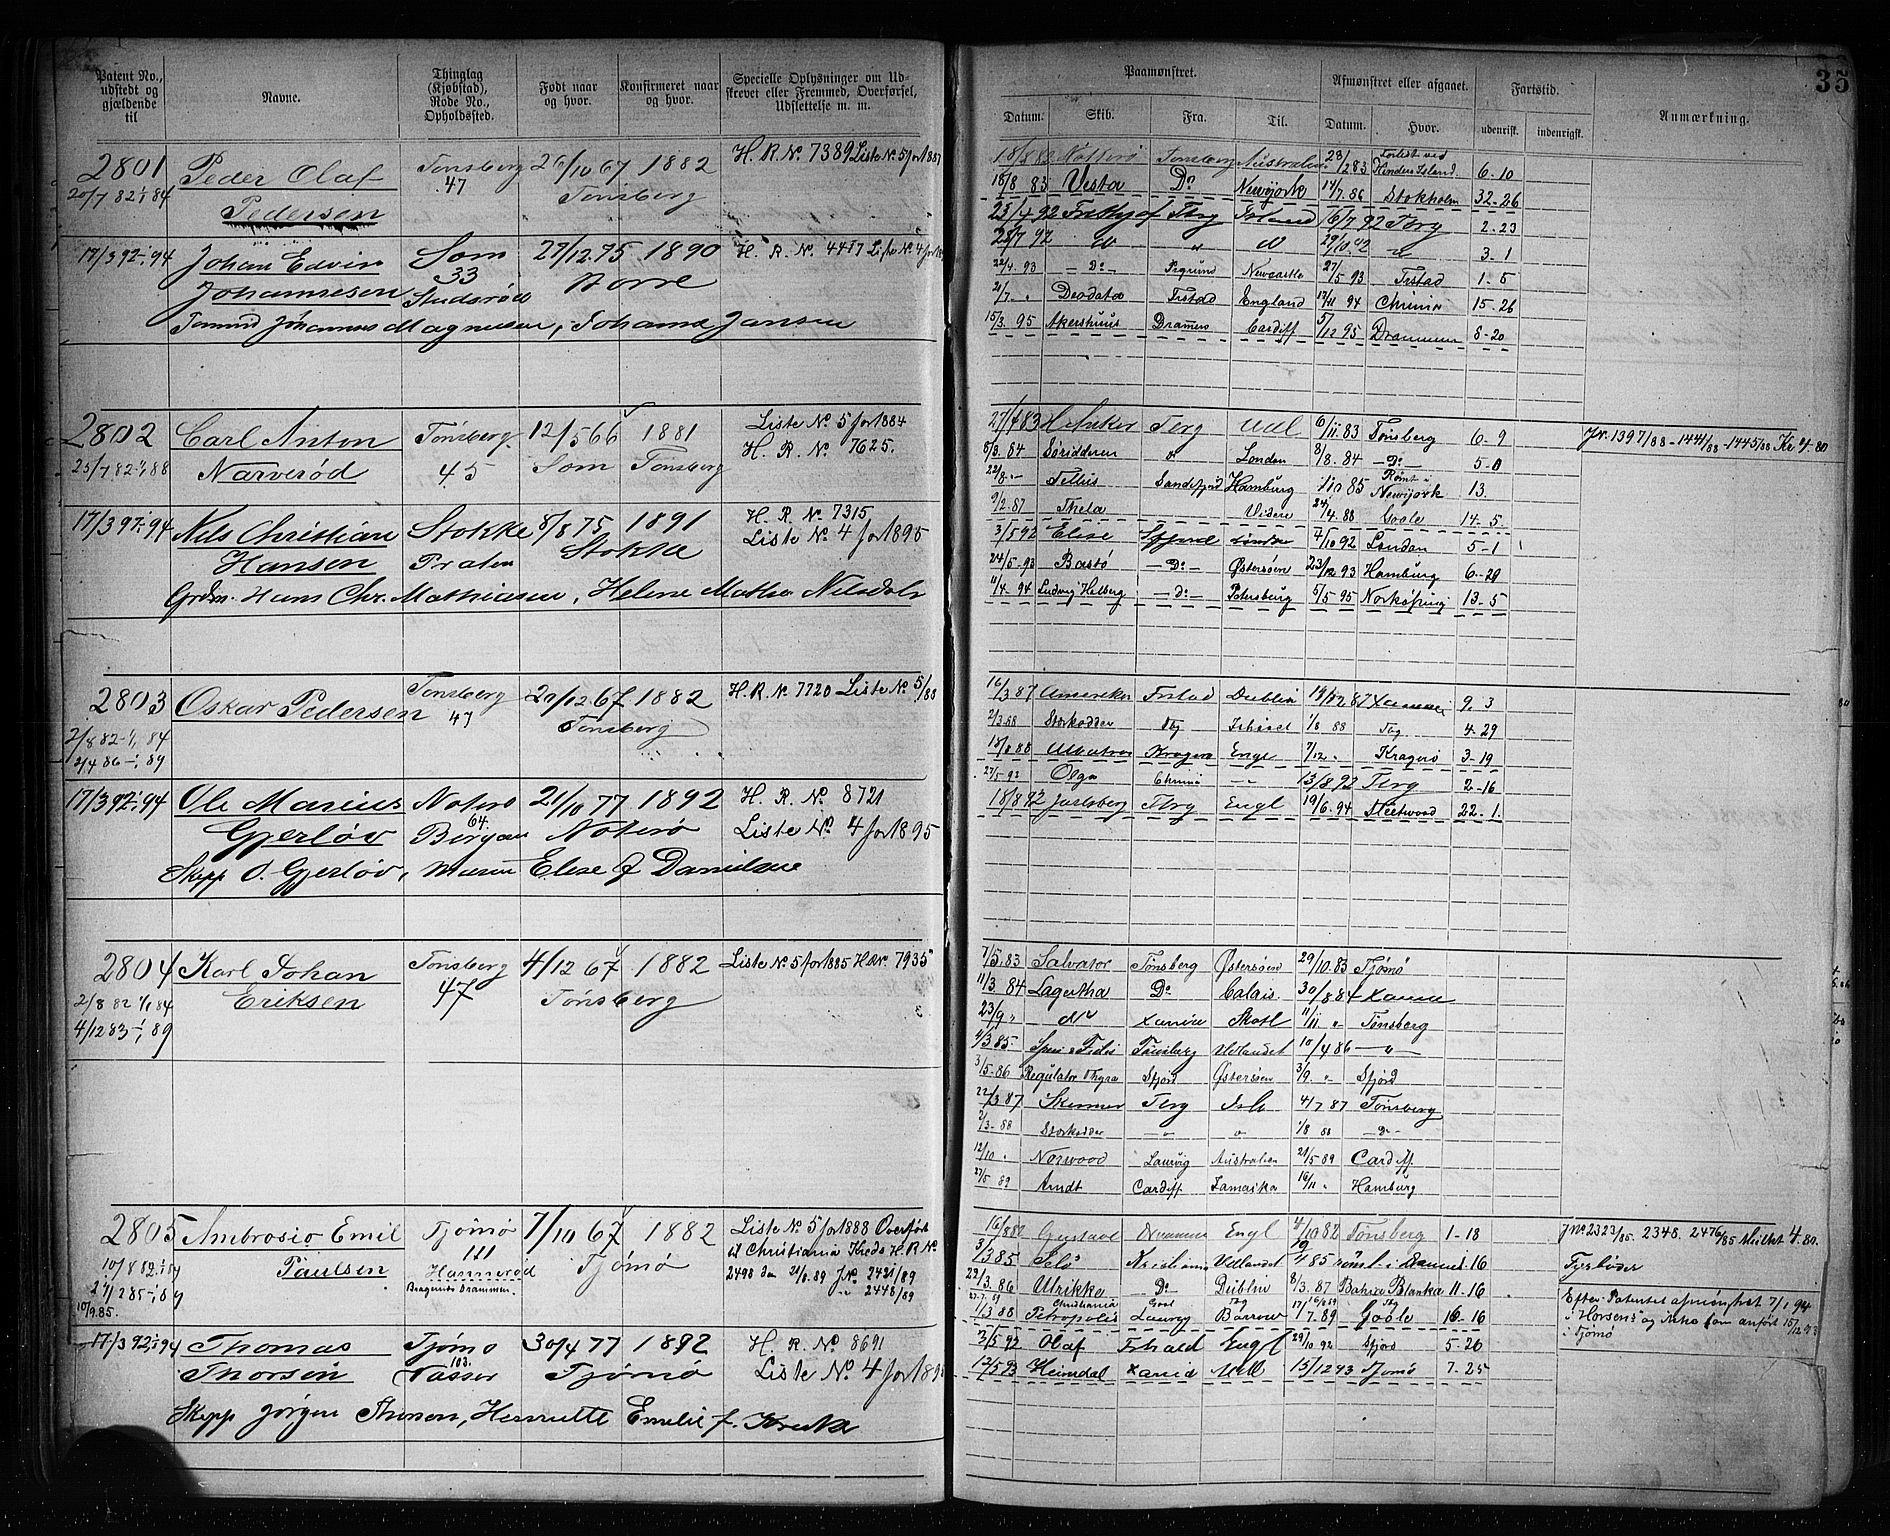 Patent No., udstedt og gjældende til
Navne.
Thinglag (Kjøbstad), Rode No., Opholdssted.
Født naar og hvor.
Konfirmeret naar og hvor.
Specielle Oplysninger om Udskrevet eller Fremmed, Overførsel, Udslettelse m. m.
2801 Peder Olaf Tønsberg 26/10 67 1882 H. R. No 7389 Liste No 5 for 1887
20/7 82 1/1 84 Pedersen 47 Tønsberg
17/3 92 1/1 94 Johan Edvin Sem 27/12 75 1890 H. R. No 4417 Liste No 4 for
Johannesen 33 Borre
Johannes Magnussen, Johanne Jansen
2802 Carl Anton Tønsberg 12/5 66 1881 Liste No 5 for 1884
25/7 82 1/1 88 Narverød 45 Sem Tønsberg H. R. No 7625.
17/3 92 1/1 94 Nils Christian Stokke 8/8 75 1891 H. R. No 7315
Hansen Præsten Stokke Liste No 4 for 1895
Grdm. Hans Chr. Mathiasen, Helene Mathea Nilsdatr
2803 Oskar Pedersen Tønsberg 29/12 67 1882 H. R. No 7720 Liste No 5/88
2/8 82 - 1/1 84 47 Tønsberg
2/4 86 - 1/1 89
17/3 92 1/1 94 Ole Marius Nøterø 21/10 77 1892 H. R. No 8721
Gjerløv 64. Bergan Nøterø Liste No 4 for 1895
Skipp O. Gjerløv, Elise f Danielsen
2804 Karl Johan Tønsberg 4/12 67 1882 Liste No 5 for 1885 H.R.No 7935
2/8 82 1/1 84 Eriksen 47 Tønsberg
4/12 83 - 1/1 89
2805 Ambrosio Emil Tjømø 7/10 67 1882 Liste No 5 for 1888 Overført
10/8 82 1/1 84 Paulsen 111 Tjømø til Christiania Kreds H. R. No
21/12 85 - 1/1 89 Hammerød 2498 den 21/6 89 J No 2421/89
10/9.85. Bragernes Drammen. " 2448/89
17/3 92 1/1 94 Thomas Tjømø 30/4 77 1892 H. R. No 8691
Thorsen 103. Tjømø Liste No 4 for 1895
Skipp Jørgen Thorsen, Henriette Emilie f.
35
Paamønstret.
Afmønstret eller afgaaet.
Fartstid.
Anmærkning.
Datum. Skib. Fra. Til. Datum. Hvor. udenrisk. indenrigsk.
18/8 82 Nøtterø Tønsberg Australien 23/2 83 Forlist ved Hinders Island 6-10
18/8 83 Vesta Do Newyork 14/7 86 Stokholm 32-26
23/4 92 Frithjof Tbrg Island 6/7 92 Tbrg 2-23
23/7 92 do " do 29/10 92 " 3-1
22/4 93 - Do - Newcastle 27/5 93 Frstad 1-5
21/7 " Deodata Frstad England 17/11 94 Chrania 15-26
15/3. 95 Akershuus Drammen Cardiff 5/12 95 Drammen 8-20
27/4 83 H Anker Tbrg Udl 6/11 83 Tønsberg 6-9 Jr. 1397/88-1441/88-1445/88 Kr 4.80
5/3. 84 Søridderen " London 8/8. 84 - Do - 5-0
22/8 - Tellus Sandefjord Hamburg 1/10 85 Rømt i Newyork 13.
9/2. 87 Thela Videre 24/4. 88 Goole 14-5.
3/5 92 Elise Sfjord London 4/10 92 London 5-1
24/5-93 Bastø - Do - Østersøen 23/12 93 Hamburg 6-29
11/4-94 Ludvig Holberg - Do - Petersburg 5/5 95 Norkøping 13-5
16/3 87 Amerika Frstad Dublin 19/12 87 9. 3
2/3 88 Storkodder Tbg 1/8 88 Tbg 4-29
18/8 88 Albatros Kragerø Engl 7/12 " Kragerø 3-19
27/5-92 Olga Chrania - " - 13/8 92 Tbrg 2-16
18/8 92 Jarlsberg Tbrg Engl 19/6. 94 Fleetwood 22-1.
7/5. 83 Salvator Tønsberg Østersøen 29/10. 83 Tjømø
11/3 84 Lagertha Do Calais. 30/8 84
23/9 " do Skotl 11/11 " Tønsberg
4/3 85. Spes & Fides Tønsberg Udlandet 10/4 86 - " -
3/5. 86 Regulator Thyra Sfjord Østersøen 3/9. " Sfjord
22/3 87 Skirmer Tbrg Isl. 4/7 87 Tønsberg
2/3- 88 Storkodder - " - " 1/8 88 - Do -
12/10 " Norwood Laurvig Australien 21/5 89 Cardiff
27/5 89 Arndt Cardiff Jamaika 16/11 " Hamburg
16/8 82 Gustav Drammen Engl 4/10 82 Tønsberg 1-18 J No 2323/85. 2348. 2476/85 Mulkt 4.80.
3/3 85 Kristiania Udlandet 85 rømt i 16
22/3. 86 Ulrikka Do Dublin 8/3. 87 Bahia Blanka 11-16
1/3 88 Petropolis Laurvig Barrow 17/7 89 Goole 16-16
Efter Patentet afmønstret 7/1 94
i Horsens og ikke som anført 15/12 93
i Tjømø
3/5 92 Olaf Frhald Engl 29/10 92 Sfjord 5-26
12/5 93 Heimdal Udl 13/12 93 Tjømø 7-25